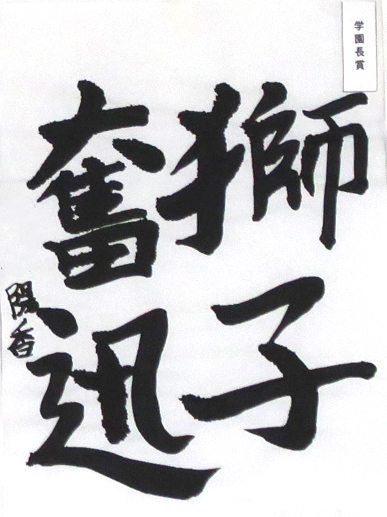 学園長賞
獅子
奮迅